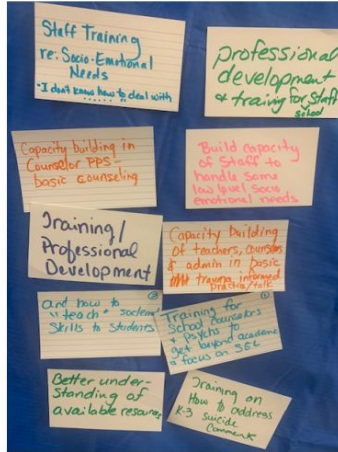 Staff Training
re: Socio-Emotional
Needs
"I don't know how to deal with
......"
professional
development
& training for staff
school
Capacity building in
Counselor PPS-
basic counseling
Build capacity
of Staff to
handle some
low level socio
emotional needs
Training/
Professional
Development
Capacity building
of teachers, counselors
& admin in basic
trauma informed
practice/talk
and how to
"teach" socioemo
Skills to Students
②
①
Training for
School counselors
& psychs to
get beyond academic
& focus on SEL
Better under-
Standing of
available resources
Training on
How to address
K-3 suicide
Comments